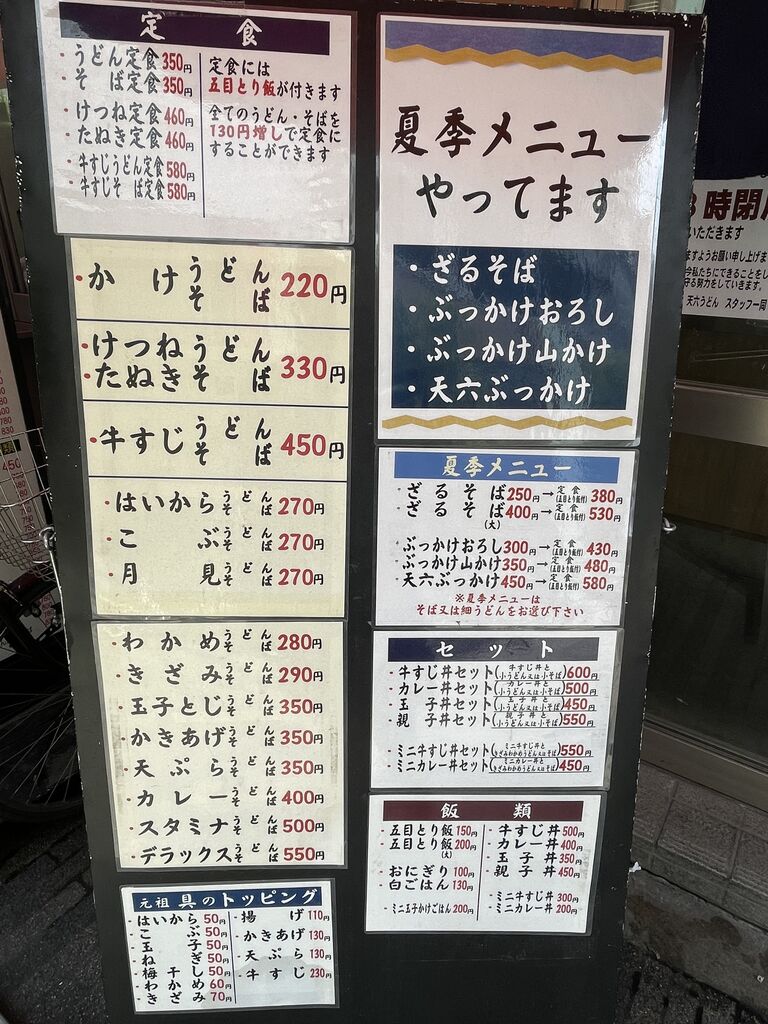 定食
・うどん定食350円
・そば定食350円
・けつね定食460円
・たぬき定食460円
・牛すじうどん定食580円
・牛すじそば定食580円
定食には
五目とり飯が付きます
全てのうどん・そばを
130円増しで定食に
することができます
・かけうどんそば220円
・けつねうどん
・たぬきそば330円
・牛すじうどんそば450円
・はいからうどんそば270円
・こぶうどんそば270円
・月見うどんそば270円
・わかめうどんそば280円
・きざみうどんそば290円
・玉子とじうどんそば350円
・かきあげうどんそば350円
・天ぷらうどんそば350円
・カレーうどんそば400円
・スタミナうどんそば500円
・デラックスうどんそば550円
元祖 具のトッピング
・はいから50円
・こぶ50円
・玉子50円
・ねぎ50円
・梅干し50円
・わかめ60円
・きざみ70円
・揚げ110円
・かきあげ130円
・天ぷら130円
・牛すじ230円
夏季メニュー
やってます
・ざるそば
・ぶっかけおろし
・ぶっかけ山かけ
・天六ぶっかけ
夏季メニュー
・ざるそば250円→定食(五目とり飯付)380円
・ざるそば(大)400円→定食(五目とり飯付)530円
・ぶっかけおろし300円→定食(五目とり飯付)430円
・ぶっかけ山かけ350円→定食(五目とり飯付)480円
・天六ぶっかけ450円→定食(五目とり飯付)580円
※夏季メニューは
そば又は細うどんをお選び下さい
セット
・牛すじ丼セット(牛すじ丼と小うどん又は小そば)600円
・カレー丼セット(カレー丼と小うどん又は小そば)500円
・玉子丼セット(玉子丼と小うどん又は小そば)450円
・親子丼セット(親子丼と小うどん又は小そば)550円
・ミニ牛すじ丼セット(ミニ牛すじ丼ときざみわかめうどん又はそば)550円
・ミニカレー丼セット(ミニカレー丼ときざみわかめうどん又はそば)450円
飯類
・五目とり飯150円
・五目とり飯(大)200円
・おにぎり100円
・白ごはん130円
・ミニ玉子かけごはん200円
・牛すじ丼500円
・カレー丼400円
・玉子丼350円
・親子丼450円
・ミニ牛すじ丼300円
・ミニカレー丼200円
時閉
いただきます
ますようお願い申し上げま
今私たちにできることをし
守る努力をしていきます。
天六うどん スタッフ一同